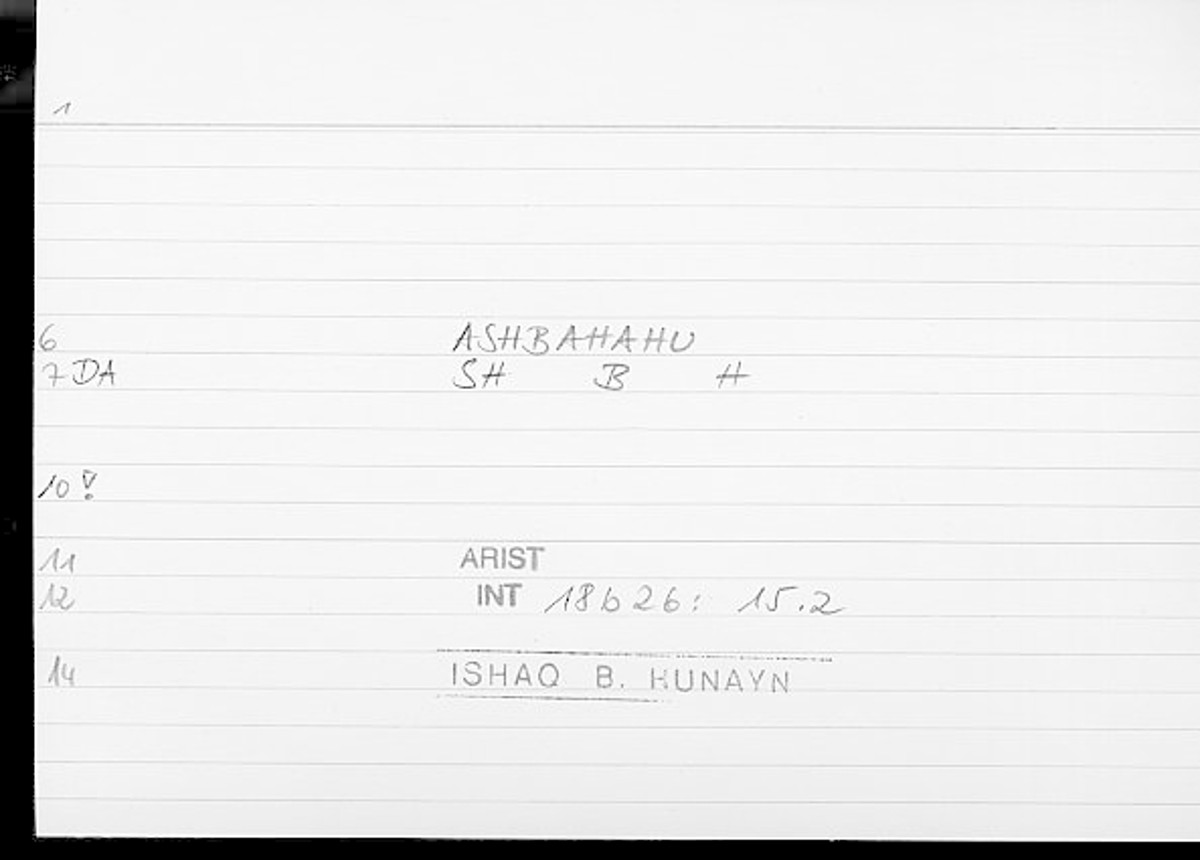 1
6 ASHBAHAHU
7 DA SH B H
10
11 ARIST
12 INT 18b26: 15.2
14 ISHAQ B. HUNAYN